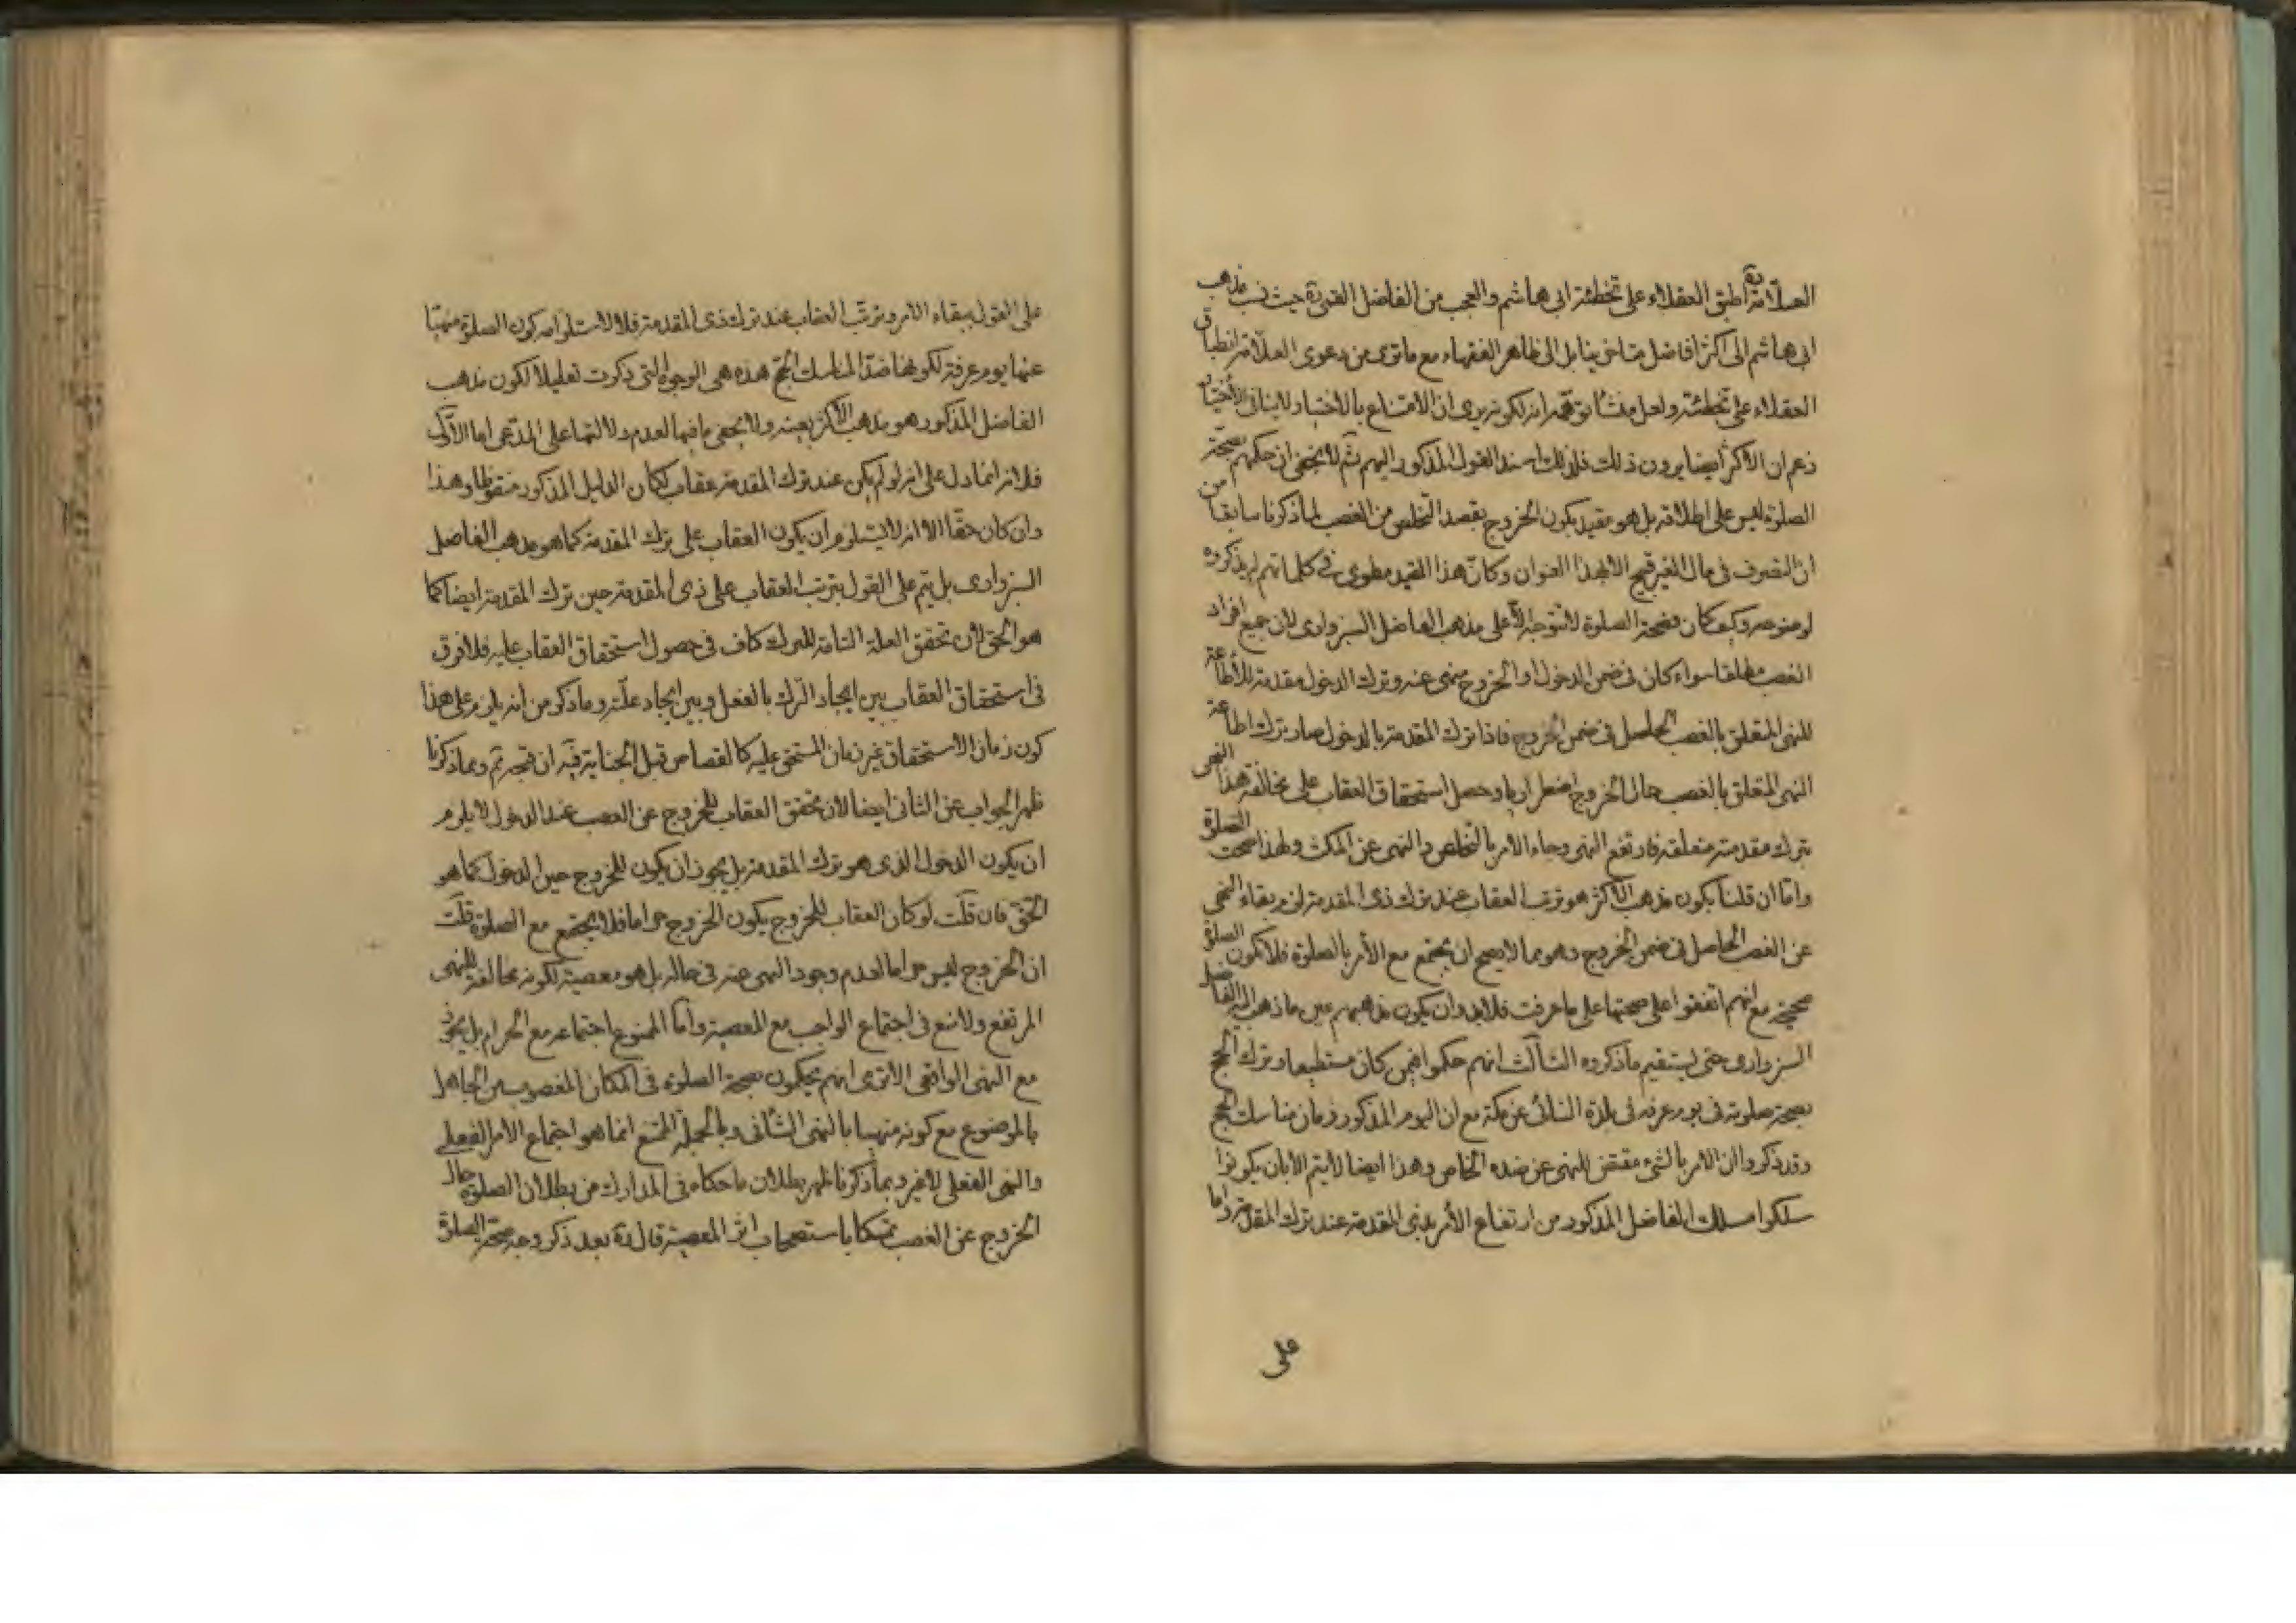 العلّامة ره أطبق العقلاء على تخطئة ابى هاشم والعجب من الفاضل القمى ره حيث نسب مذهب
ابى هاشم الى اكثر افاضل متاخرينا بل الى ظاهر الفقهاء مع ما ترى من دعوى العلّامة انطباق
العقلاء على تخطئته ولعل منشأ توهمه انه لكونه يرى ان الامتناع بالاختيار لا ينافى الاختيار
زعم ان الاكثر أيضا يرون ذلك فلذلك اسند القول المذكور اليهم ثم لا يخفى ان حكمهم بصحّة
الصلوة ليس على اطلاقه بل هو مقيد بكون الخروج بقصد التخلص من الغصب لما ذكرنا سابقا من
ان التصرف فى مال الغير قبيح الا بهذا العنوان وكانّ هذا القيد مطوى فى كلماتهم لم يذكروه
لوضوحه وكيف كان فصحة الصلوة لا تتوجه الّا على مذهب الفاضل السبزوارى لان جميع افراد
الغصب مطلقا سواء كان فى ضمن الدخول او الخروج منهى عنه وترك الدخول مقدمة للأطاعة
للنهى المتعلق بالغصب الحاصل فى ضمن الخروج فاذا ترك المقدمة بالدخول صار بترك اطاعة
النهى المتعلق بالغصب حال الخروج اضطراريا وحصل استحقاق العقاب على مخالفة هذا النهى
بترك مقدمته متعلقه فارتفع النهى وجاء الامر بالتخلص والنهى عن المكث ولهذا صحت الصلوة
وامّا ان قلنا بكون مذهب الأكثر هو ترتب العقاب عند ترك ذى المقدمة لزم بقاء النهى
عن الغصب الحاصل فى ضمن الخروج وهو مما لا يصح ان يجتمع مع الأمر بالصلوة فلا تكون الصلوة
صحيحة مع انهم اتفقوا على صحتها على ما عرفت فلا بد وان يكون مذهبهم عين ما ذهب اليه الفاضل
السبزوارى حتى يستقيم ما ذكروه الثالث انهم حكموا فيمن كان مستطيعا وترك الحج
بصحة صلوته فى يوم عرفه فى بلده النائى عن مكة مع ان اليوم المذكور زمان مناسك الحج
وقد ذكروا ان الامر بالشىء مقتض للنهى عن ضده الخاص وهذا ايضا لا يتم الا بان يكونوا
سلكوا مسلك الفاضل المذكور من ارتفاع الأمر بذى المقدمة عند ترك المقدمة واما
على
على القول ببقاء الامر وترتب العقاب عند ترك ذى المقدمة فلا لاستلزامه كون الصلوة منهيّا
عنها يوم عرفة لكونها ضدّ المناسك الحجّ هذه هى الوجوه التى ذكرت تعليلا لكون مذهب
الفاضل المذكور هو مذهب الأكثر بعينه ولا يخفى ما فيها لعدم دلالتها على المدّعى اما الأوّل
فلانه انما دل على انه لو لم يكن عند ترك المقدمة عقاب لكان الدليل المذكور منقوضا وهذا
وان كان حقّا الا انه لا يستلزم ان يكون العقاب على ترك المقدمة كما هو مذهب الفاضل
السبزوارى بل يتم على القول بترتب العقاب على ذى المقدمة حين ترك المقدمة ايضا كما
هو الحق لأن تحقق العلة التامة للترك كاف فى حصول استحقاق العقاب عليه فلا فرق
فى استحقاق العقاب بين ايجاد الترك بالفعل وبين ايجاد علّته وما ذكر من انه يلزم على هذا
كون زمان الاستحقاق غير زمان المستحق عليه كالقصاص قبل الجناية فيه ان قبحه تم وبما ذكرنا
ظهر الجواب عن الثانى ايضا لأن تحقق العقاب للخروج عن الغصب عند الدخول لا يلزم
ان يكون الدخول الذى هو ترك المقدمة بل يجوز ان يكون للخروج حين الدخول كما هو
الحق فان قلت لو كان العقاب للخروج يكون الخروج حراما فلا يجتمع مع الصلوة قلت
ان الخروج ليس حراما لعدم وجود النهى عنه فى حاله بل هو معصية لكونه مخالفة للنهى
المرتفع ولا منع فى اجتماع الواجب مع المعصية وامّا الممنوع اجتماعه مع الحرام بل يجوز
مع النهى الواقعى الا ترى انهم يحكمون بصحة الصلوة فى المكان المغصوب من الجاهل
بالموضوع مع كونه منهيا بالنهى الشأنى وبالجملة الممتنع انما هو اجتماع الأمر الفعلى
والنهى الفعلى لا غير وبما ذكرنا ظهر بطلان ما حكاه فى المدارك من بطلان الصلوة حال
الخروج عن الغصب تمسكا باستصحاب اثر المعصية قال ره بعد ذكر وجه صحّة الصلوة